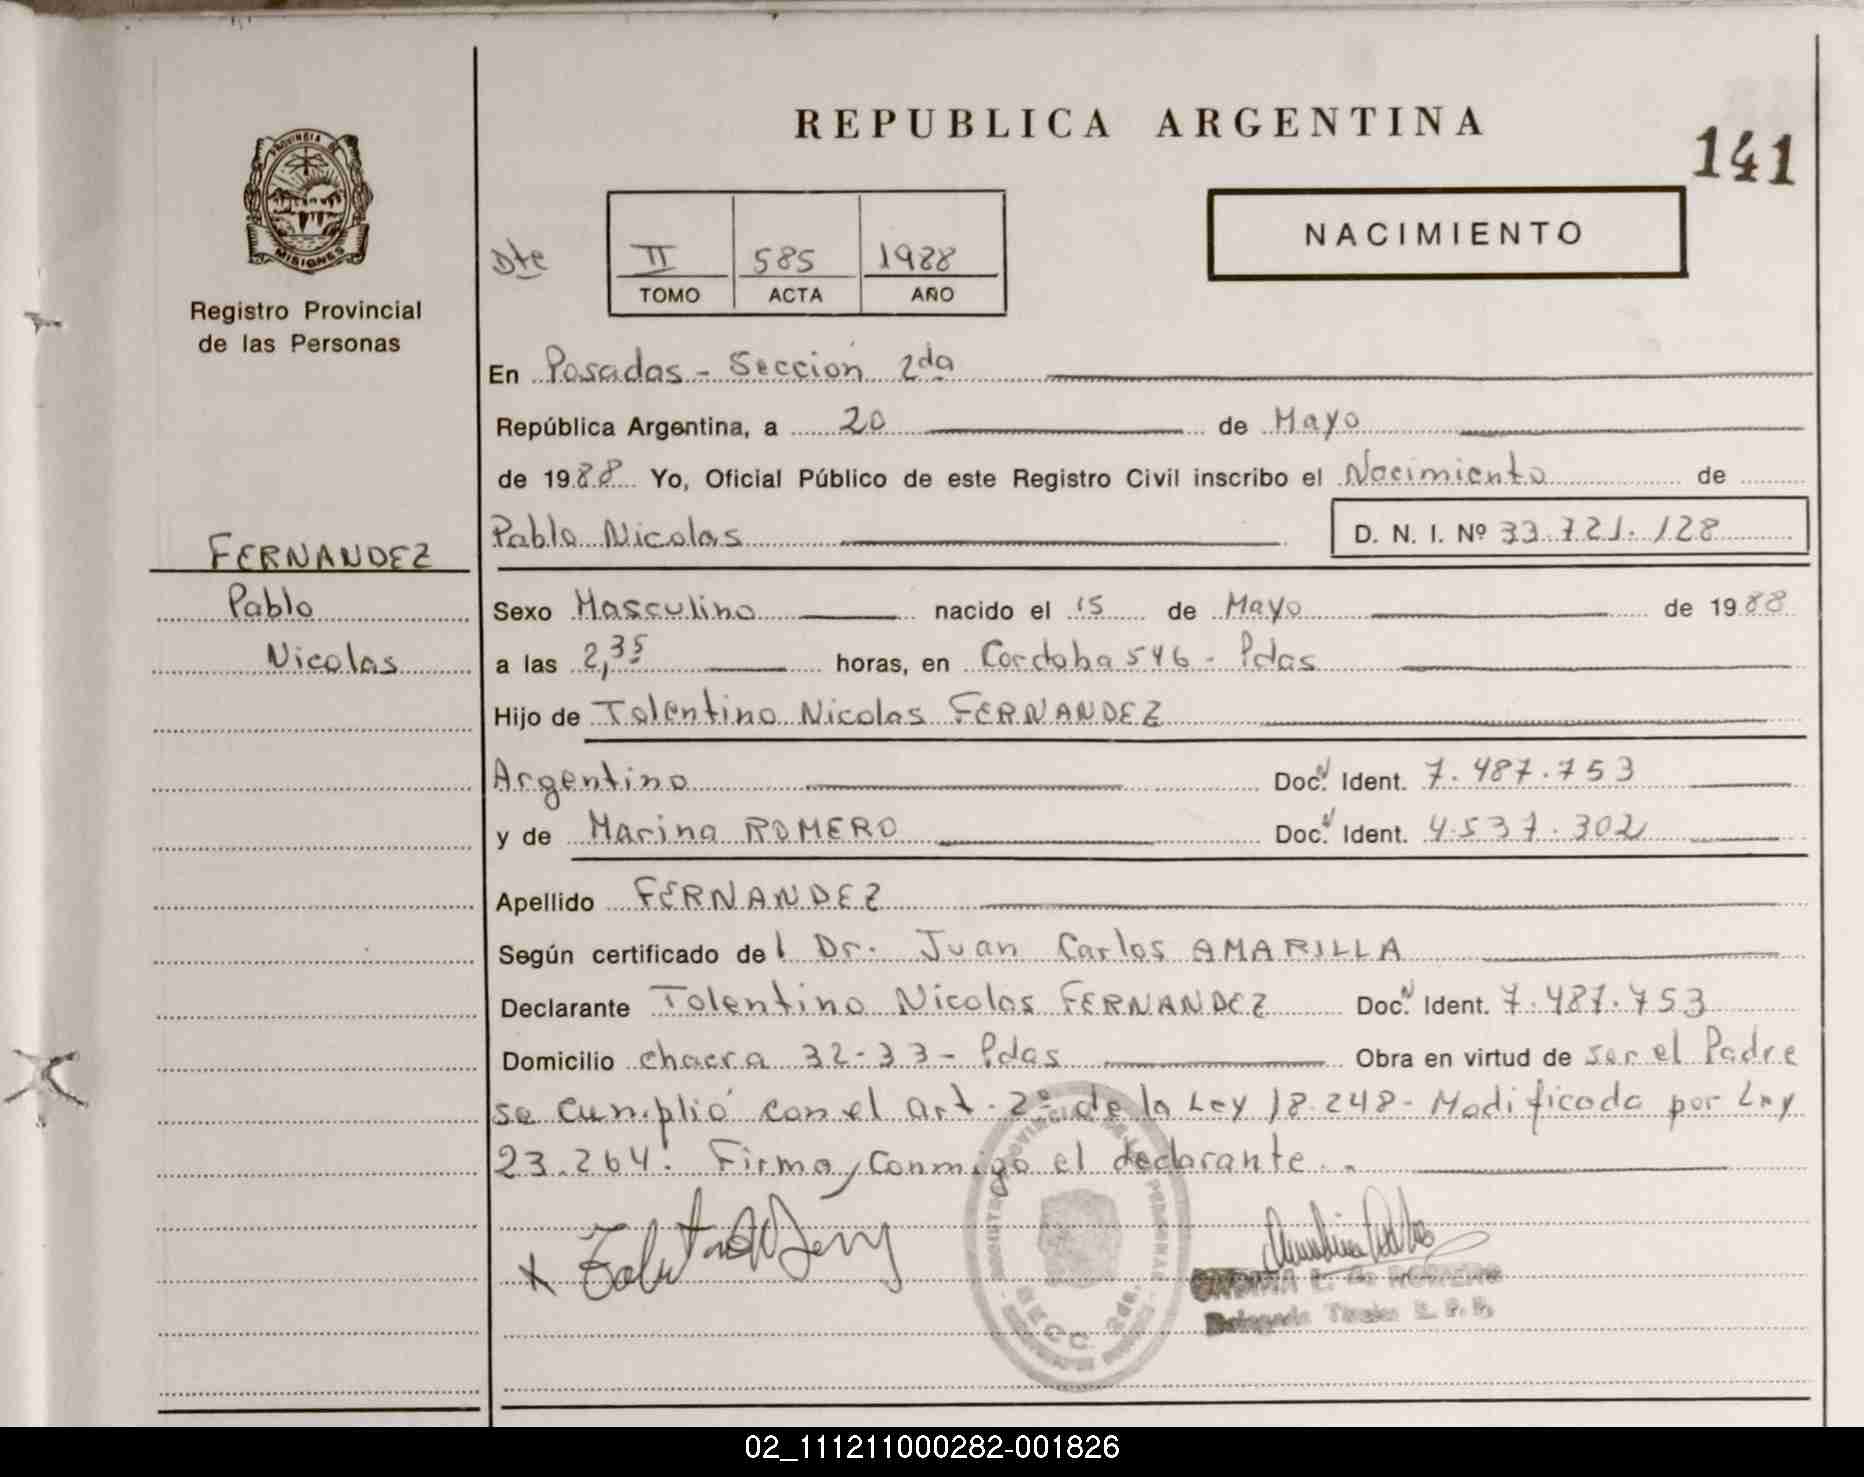 REPUBLICA ARGENTINA
141
PROVINCIA DE
MISIONES
Registro Provincial
de las Personas
Dte
II 585 1988
TOMO ACTA AÑO
NACIMIENTO
En Posadas - Sección 2da
República Argentina, a 20 de Mayo
de 1988 Yo, Oficial Público de este Registro Civil inscribo el Nacimiento de
Pablo Nicolas D. N. I. Nº 33.721.128
FERNANDEZ
Pablo
Nicolas
Sexo Masculino nacido el 15 de Mayo de 1988
a las 2,35 horas, en Cordoba 546 - Pdas
Hijo de Tolentino Nicolas FERNANDEZ
Argentino Doc. Ident. 7.487.753
y de Marina ROMERO Doc. Ident. 4.537.302
Apellido FERNANDEZ
Según certificado del Dr. Juan Carlos AMARILLA
Declarante Tolentino Nicolas FERNANDEZ Doc. Ident. 7.487.753
Domicilio chacra 32-33- Pdas Obra en virtud de ser el Padre
se cumplió con el art. 2º de la Ley 18.248- Modificada por Ley
23.264. Firma conmigo el declarante.
02_111211000282-001826